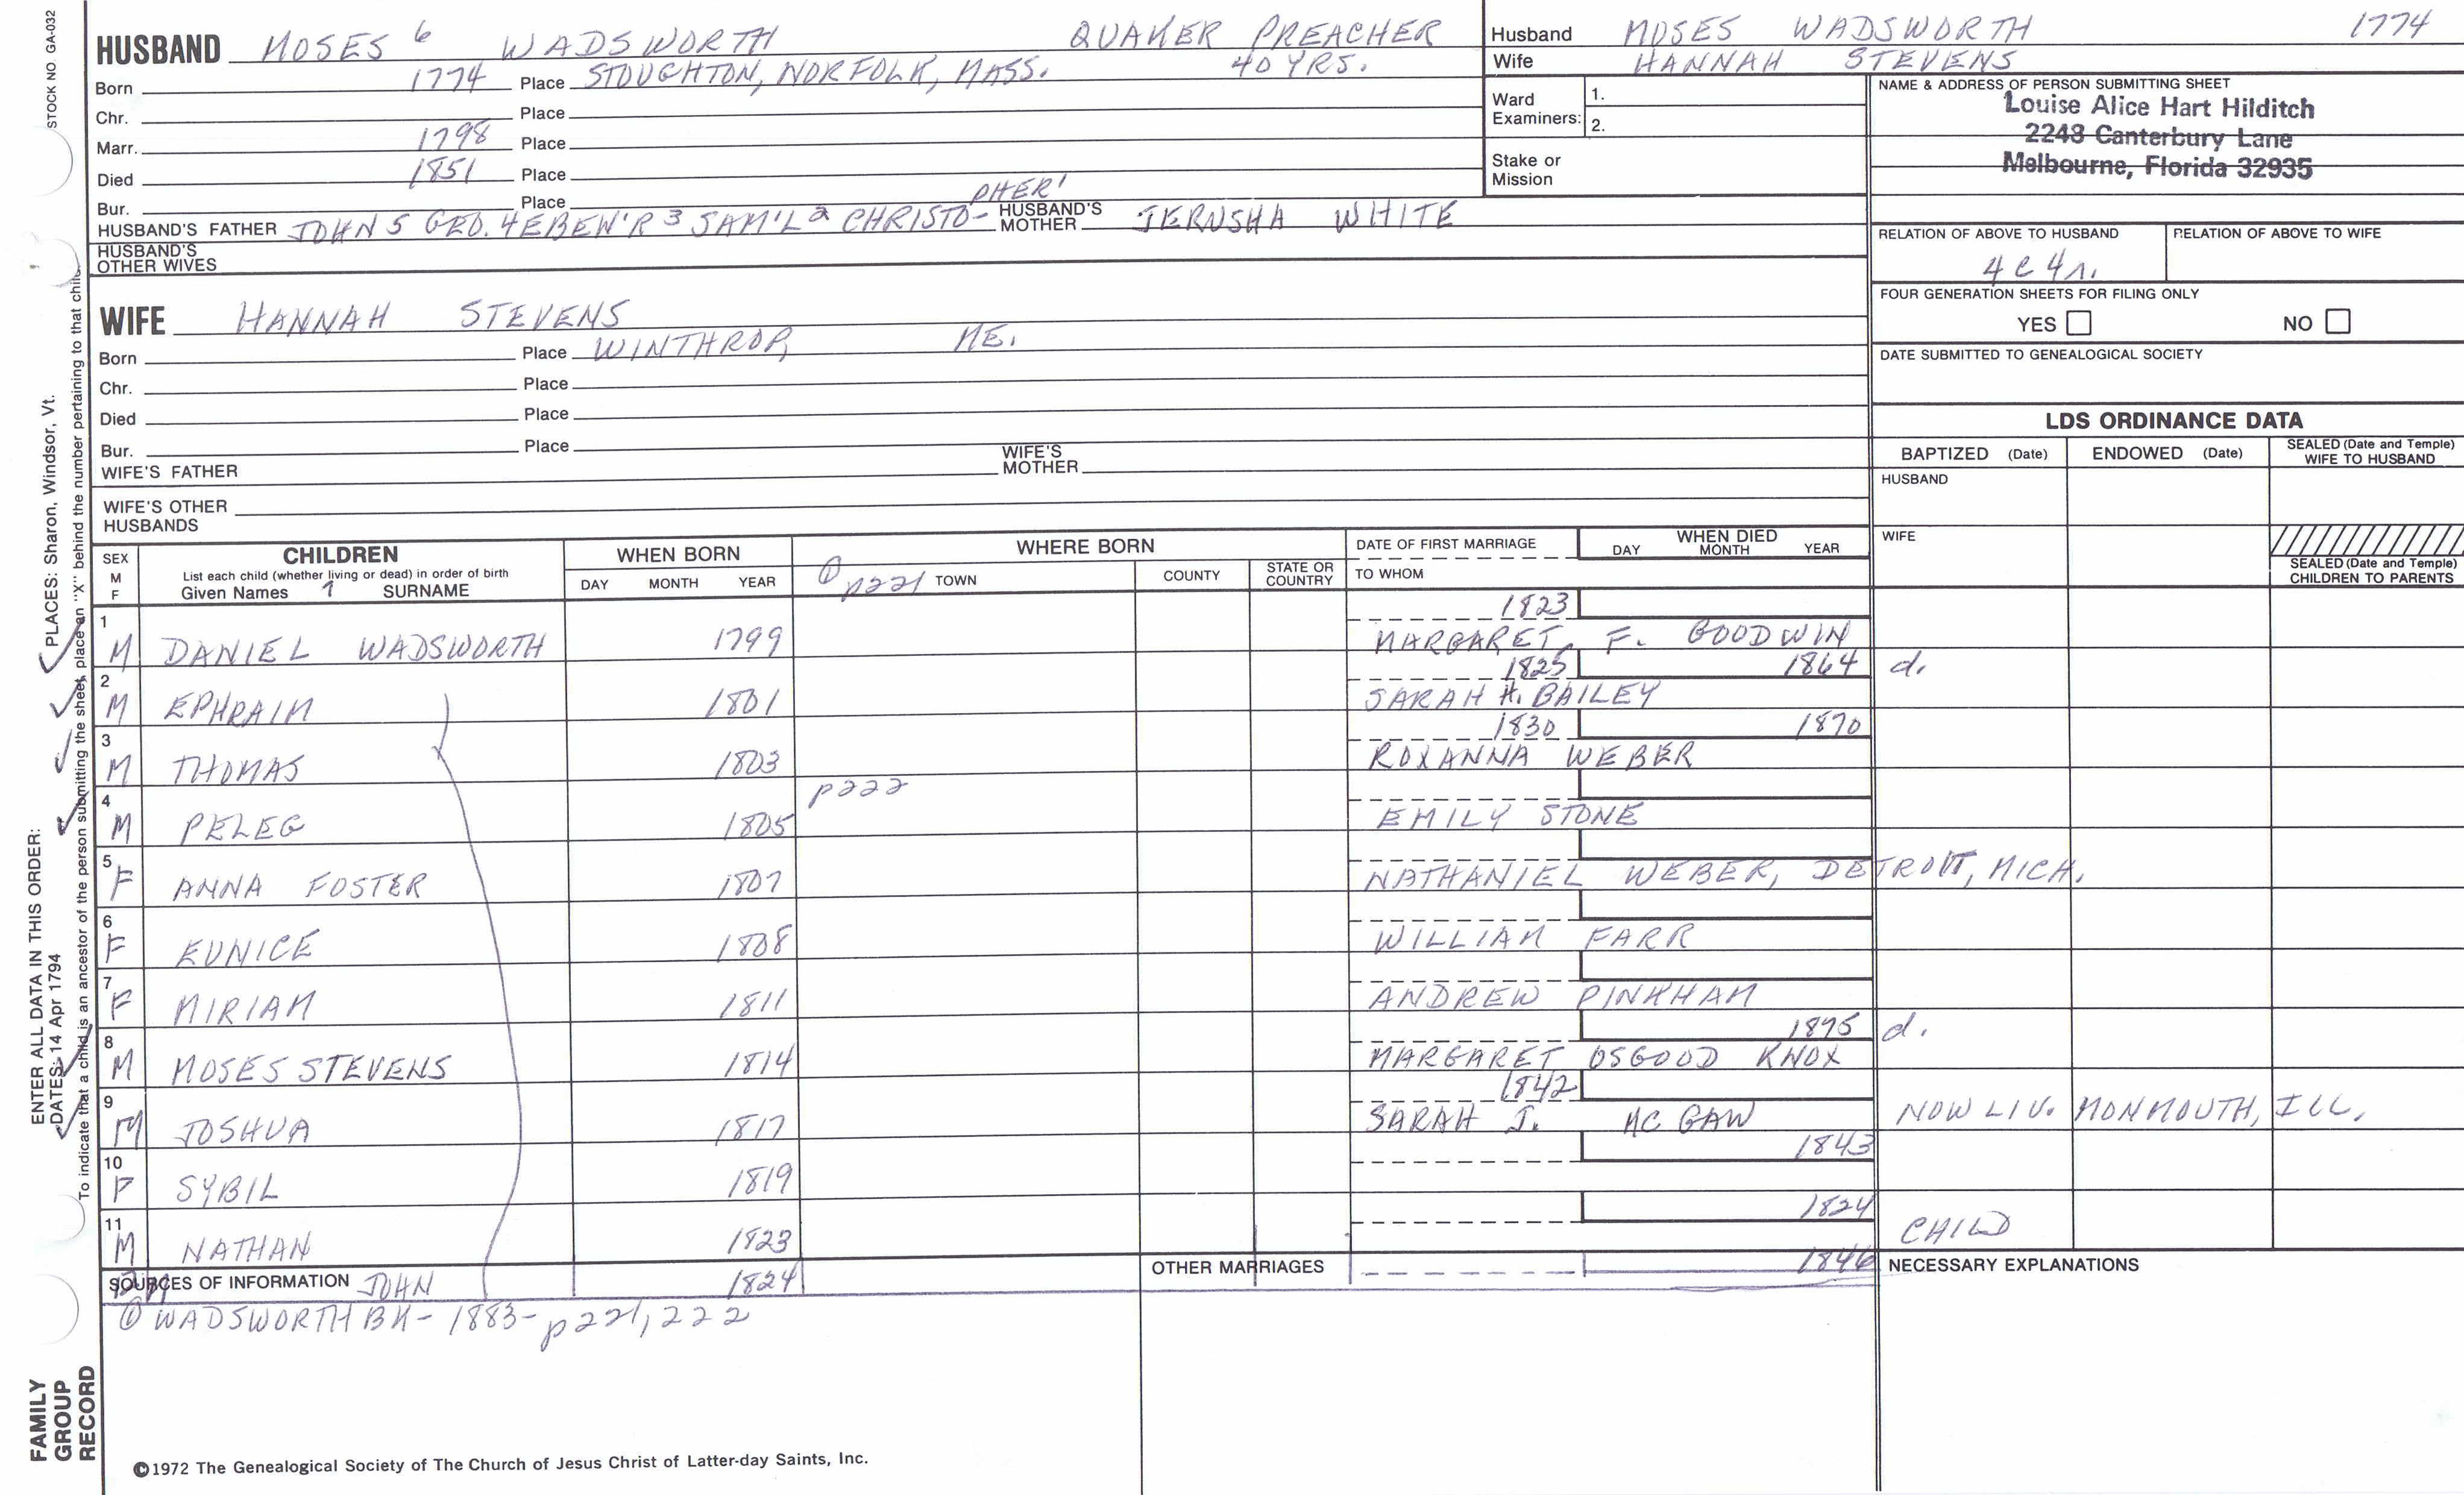 STOCK NO. GA-032
HUSBAND MOSES 6 WADSWORTH QUAKER PREACHER
Born 1774 Place STOUGHTON, NORFOLK, MASS. 40 YRS.
Chr. Place
Marr. 1798 Place
Died 1851 Place
Bur. Place
PHER'
HUSBAND'S FATHER JOHN 5 GEO. 4 EBEN'R 3 SAM'L 2 CHRISTO- HUSBAND'S MOTHER JERUSHA WHITE
HUSBAND'S OTHER WIVES
WIFE HANNAH STEVENS
Born Place WINTHROP, ME.
Chr. Place
Died Place
Bur. Place
WIFE'S FATHER WIFE'S MOTHER
WIFE'S OTHER HUSBANDS
Husband MOSES WADSWORTH 1774
Wife HANNAH STEVENS
Ward Examiners: 1.
2.
Stake or Mission
NAME & ADDRESS OF PERSON SUBMITTING SHEET
Louise Alice Hart Hilditch
2248 Canterbury Lane
Melbourne, Florida 32935
RELATION OF ABOVE TO HUSBAND RELATION OF ABOVE TO WIFE
4 C 4 r.
FOUR GENERATION SHEETS FOR FILING ONLY
YES NO
DATE SUBMITTED TO GENEALOGICAL SOCIETY
LDS ORDINANCE DATA
BAPTIZED (Date) ENDOWED (Date) SEALED (Date and Temple) WIFE TO HUSBAND
HUSBAND
WIFE
SEALED (Date and Temple) CHILDREN TO PARENTS
SEX M F
CHILDREN
List each child (whether living or dead) in order of birth
Given Names 7 SURNAME
WHEN BORN
DAY MONTH YEAR
WHERE BORN
① p221 TOWN COUNTY STATE OR COUNTRY
DATE OF FIRST MARRIAGE
TO WHOM
WHEN DIED
DAY MONTH YEAR
1 1823
M DANIEL WADSWORTH 1799 MARGARET F. GOODWIN
2 1825 1864 d.
M EPHRAIM 1801 SARAH H. BAILEY
3 1830 1870
M THOMAS 1803 ROXANNA WEBER
4 p222
M PELEG 1805 EMILY STONE
5
F ANNA FOSTER 1807 NATHANIEL WEBER, DETROIT, MICH.
6
F EUNICE 1808 WILLIAM FARR
7
F MIRIAM 1811 ANDREW PINKHAM
8 1875 d.
M MOSES STEVENS 1814 MARGARET OSGOOD KNOX
9 1842
M JOSHUA 1817 SARAH J. MC GAW NOW LIV. MONMOUTH, ILL.
10 1843
F SYBIL 1819
11 1824
M NATHAN 1823 CHILD
SOURCES OF INFORMATION JOHN 1824 OTHER MARRIAGES 1846 NECESSARY EXPLANATIONS
① WADSWORTH BK - 1883 - p221, 222
ENTER ALL DATA IN THIS ORDER:
DATES: 14 Apr 1794
PLACES: Sharon, Windsor, Vt.
To indicate that a child is an ancestor of the person submitting the sheet, place an "X" behind the number pertaining to that child.
FAMILY GROUP RECORD
©1972 The Genealogical Society of The Church of Jesus Christ of Latter-day Saints, Inc.